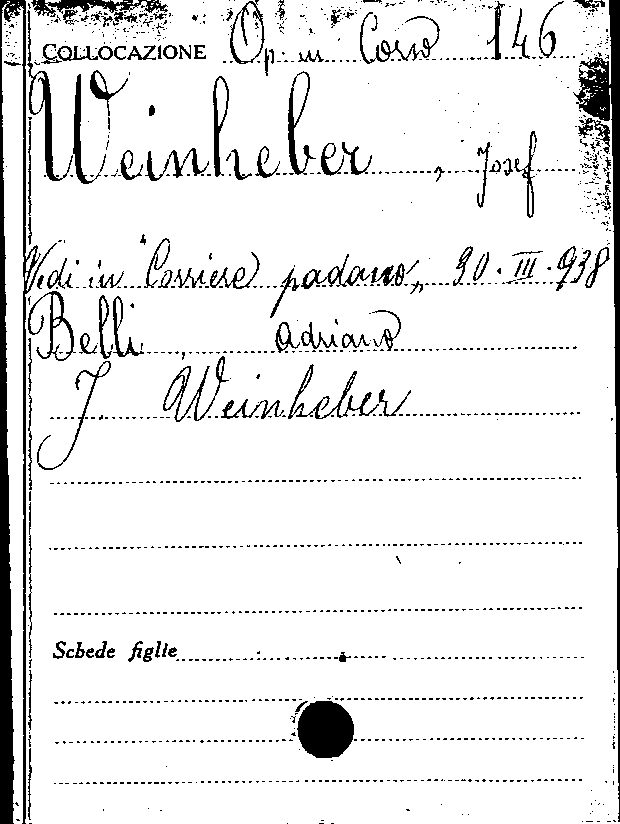 COLLOCAZIONE Op. in Corso 146
Weinheber, Josef
Vedi in "Corriere padano„ 30·III·938
Belli, Adriano
J. Weinheber
Schede figlie